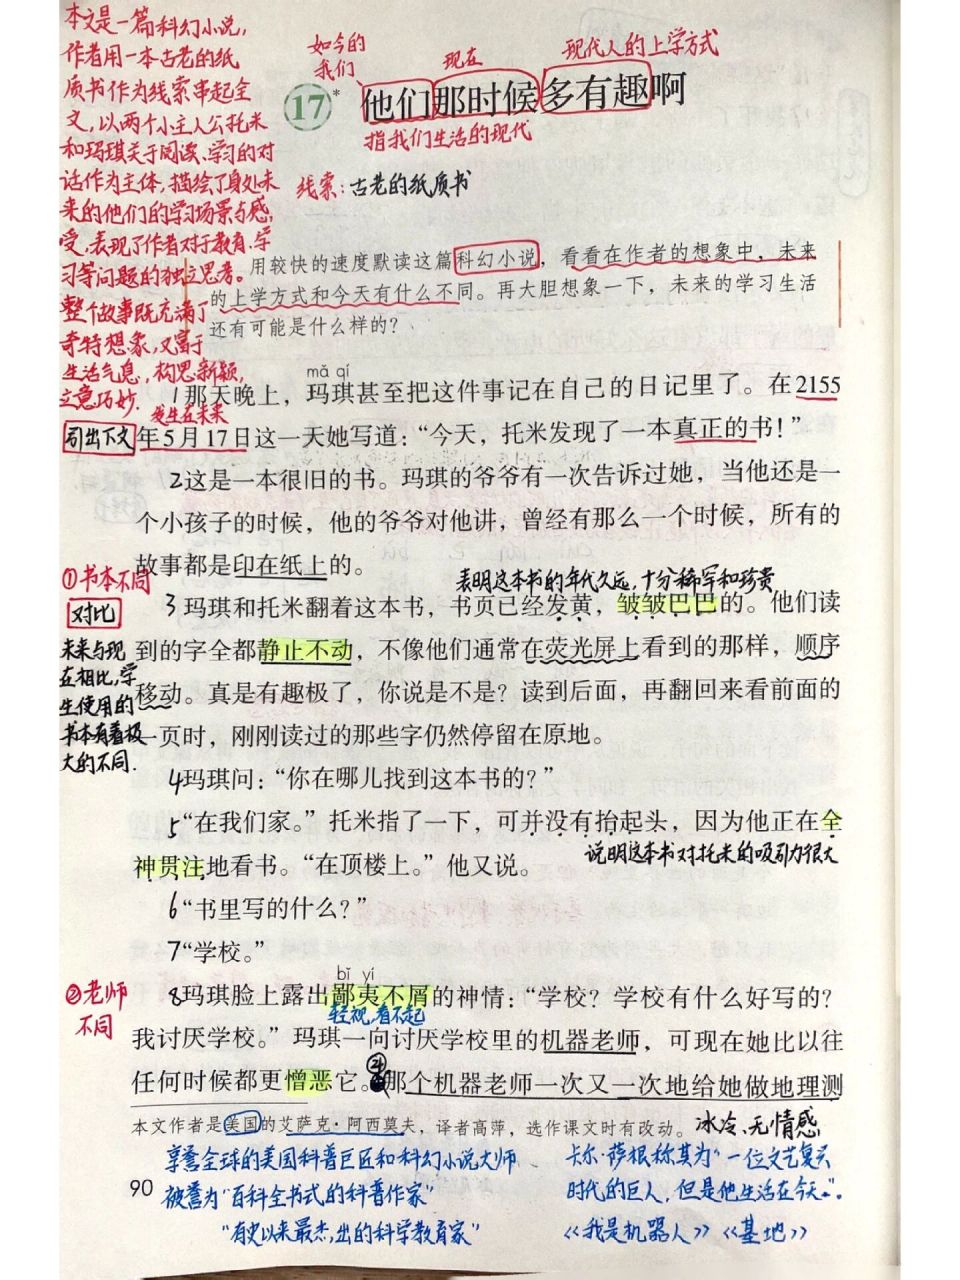 本文是一篇科幻小说,
作者用一本古老的纸
质书作为线索串起全
文,以两个小主人公托米
和玛琪关于阅读、学习的对
话作为主体,描绘了身处未
来的他们的学习场景与感
受,表现了作者对于教育、学
习等问题的独立思考。
整个故事既充满了
奇特想象,又富于
生活气息,构思新颖,
立意巧妙.
如今的
我们
现在
现代人的上学方式
17*
他们那时候多有趣啊
指我们生活的现代
线索:古老的纸质书
用较快的速度默读这篇科幻小说,看看在作者的想象中,未来
的上学方式和今天有什么不同。再大胆想象一下,未来的学习生活
还有可能是什么样的?
mǎ qí
1那天晚上,玛琪甚至把这件事记在自己的日记里了。在2155
发生在未来
引出下文
年5月17日这一天她写道:“今天,托米发现了一本真正的书!”
2这是一本很旧的书。玛琪的爷爷有一次告诉过她,当他还是一
个小孩子的时候,他的爷爷对他讲,曾经有那么一个时候,所有的
故事都是印在纸上的。
①书本不同
对比
未来与现
在相比,学
生使用的
书本有着极
大的不同.
表明这本书的年代久远,十分稀罕和珍贵
3玛琪和托米翻着这本书,书页已经发黄,皱皱巴巴的。他们读
到的字全都静止不动,不像他们通常在荧光屏上看到的那样,顺序
移动。真是有趣极了,你说是不是?读到后面,再翻回来看前面的
一页时,刚刚读过的那些字仍然停留在原地。
4玛琪问:“你在哪儿找到这本书的?”
5“在我们家。”托米指了一下,可并没有抬起头,因为他正在全
神贯注地看书。“在顶楼上。”他又说。
说明这本书对托米的吸引力很大
6“书里写的什么?”
7“学校。”
bǐ yí
②老师
不同
8玛琪脸上露出鄙夷不屑的神情:“学校?学校有什么好写的?
轻视,看不起
我讨厌学校。”玛琪一向讨厌学校里的机器老师,可现在她比以往
任何时候都更憎恶它。那个机器老师一次又一次地给她做地理测
冰冷、无情感
本文作者是美国的艾萨克·阿西莫夫,译者高萍,选作课文时有改动。
享誉全球的美国科普巨匠和科幻小说大师
被誉为“百科全书式的科普作家”
“有史以来最杰出的科学教育家”
卡尔·萨根称其为“一位文艺复兴
时代的巨人,但是他生活在今天”.
《我是机器人》《基地》
90